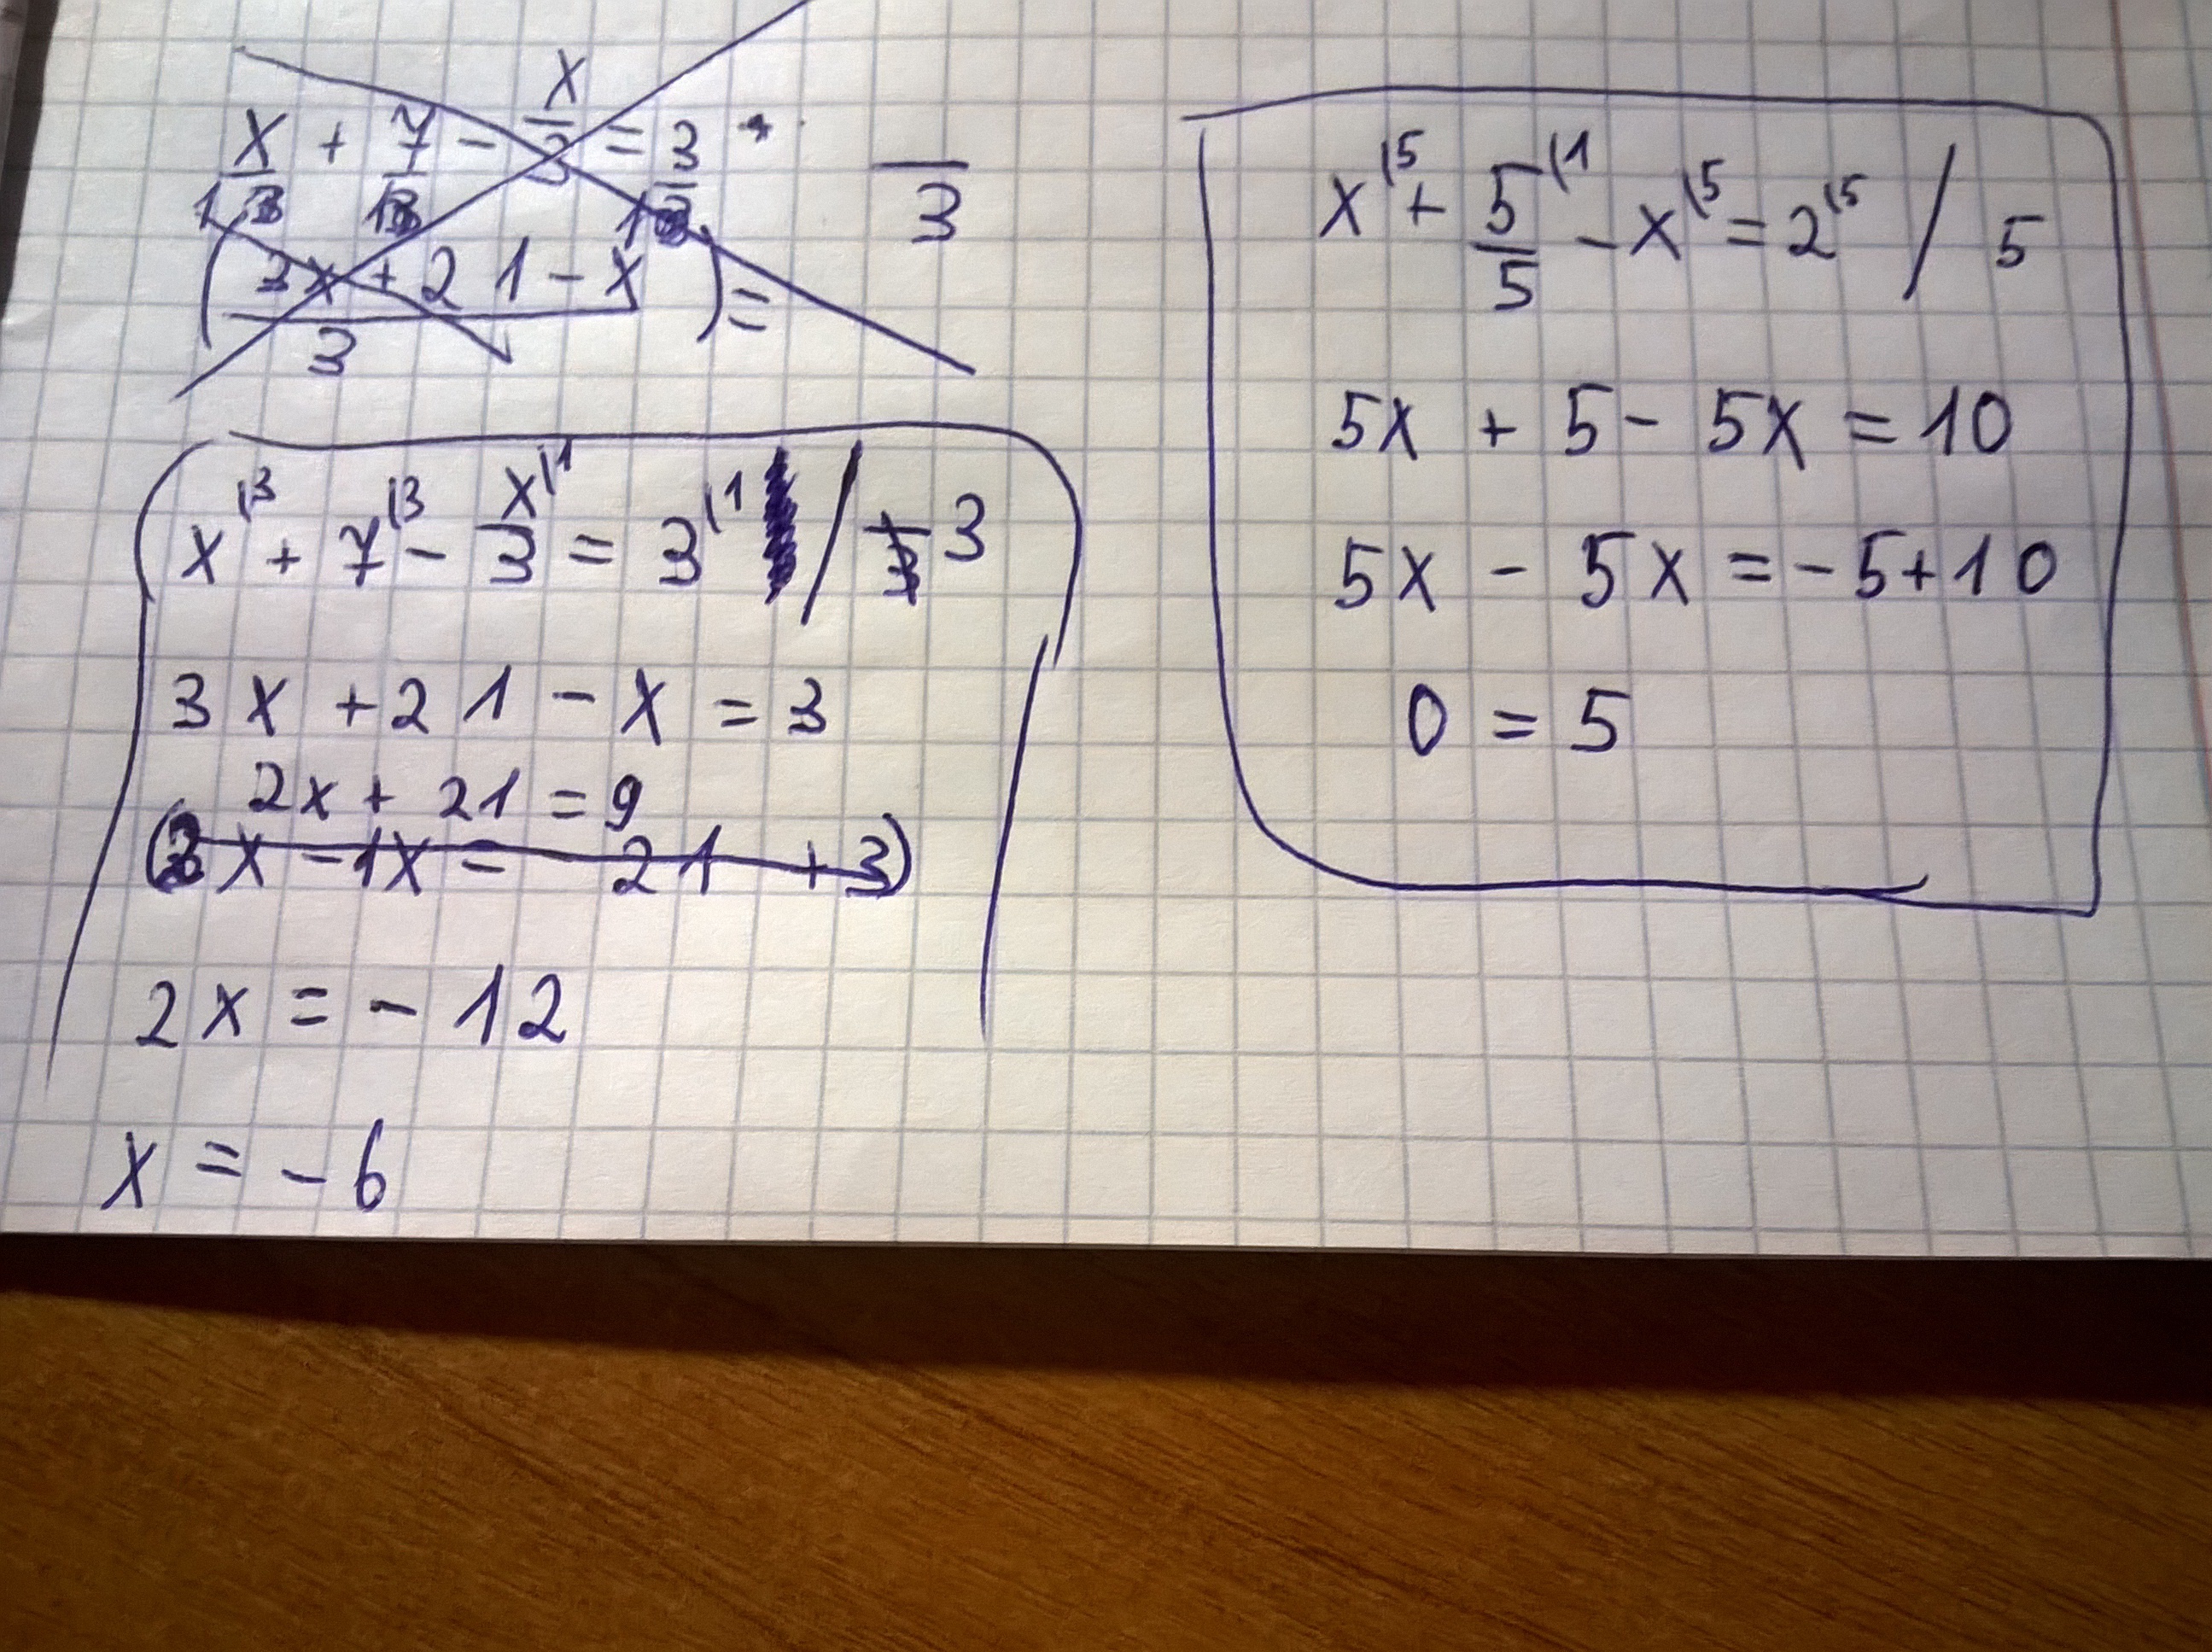 x/1 + 7/1 - x/3 = 3/1
(3x + 21 - x)/3 =
/3
x⁽³ + 7⁽³ - x⁽¹/3 = 3⁽¹ / 3
3x + 21 - x = 3
2x + 21 = 9
(3x - 1x = - 21 + 3)
2x = - 12
x = - 6
x⁽⁵ + 5⁽¹/5 - x⁽⁵ = 2⁽⁵ / 5
5x + 5 - 5x = 10
5x - 5x = - 5 + 10
0 = 5